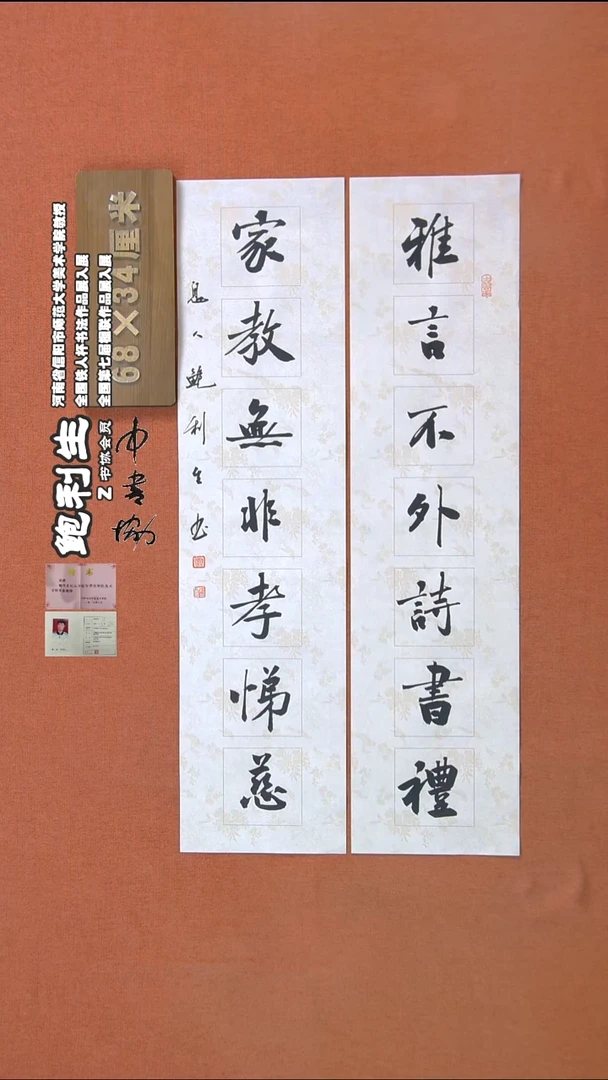 雅言不外詩書禮
家教無非孝悌慈
息人鮑利生書
68×34厘米
河南省信阳市师范大学美术学院教授
全国铁人杯书法作品展入展
全国第七届楹联作品展入展
鲍利生
Z书协会员
中书协